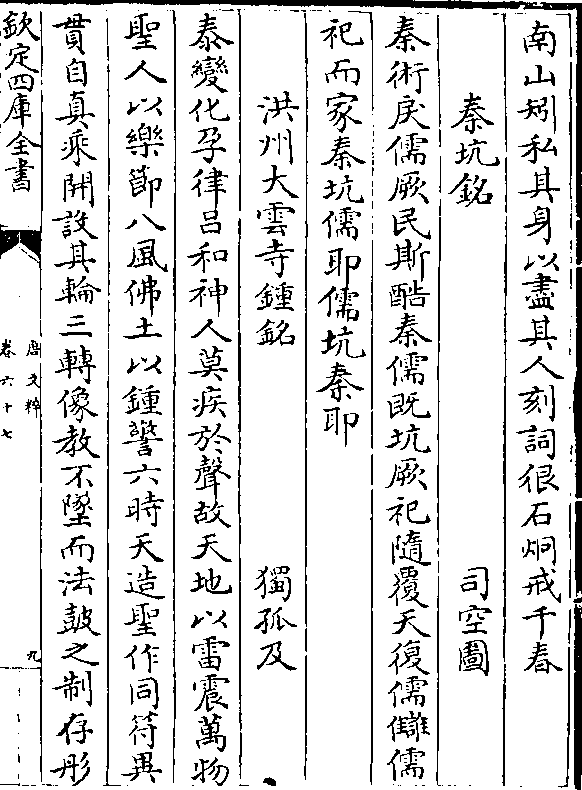 南山矧私其身以盡其人刻詞很石炯戒千春
秦坑銘　司空圖
秦術戾儒厥民斯酷秦儒既坑厥祀隨覆天復儒讎儒
祀而家秦坑儒耶儒坑秦耶
洪州大雲寺鍾銘　獨孤及
泰變化孕律呂和神人莫疾於聲故天地以雷震萬物
聖人以樂節八風佛土以鍾警六時天造聖作同符異
貫自真乘開設其輪三轉像教不墜而法鼓之制存彤
欽定四庫全書
唐文粹
卷六十七
九